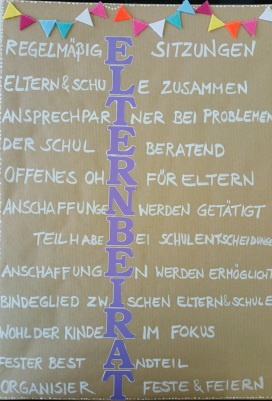 REGELMÄßIGE SITZUNGEN
ELTERN&SCHULE ZUSAMMEN
ANSPRECHPARTNER BEI PROBLEMEN
DER SCHULE BERATEND
OFFENES OHR FÜR ELTERN
ANSCHAFFUNGEN WERDEN GETÄTIGT
TEILHABE BEI SCHULENTSCHEIDUNGE
ANSCHAFFUNGEN WERDEN ERMÖGLICHT
BINDEGLIED ZWISCHEN ELTERN&SCHULE
WOHL DER KINDER IM FOKUS
FESTER BESTANDTEIL
ORGANISIERT FESTE & FEIERN